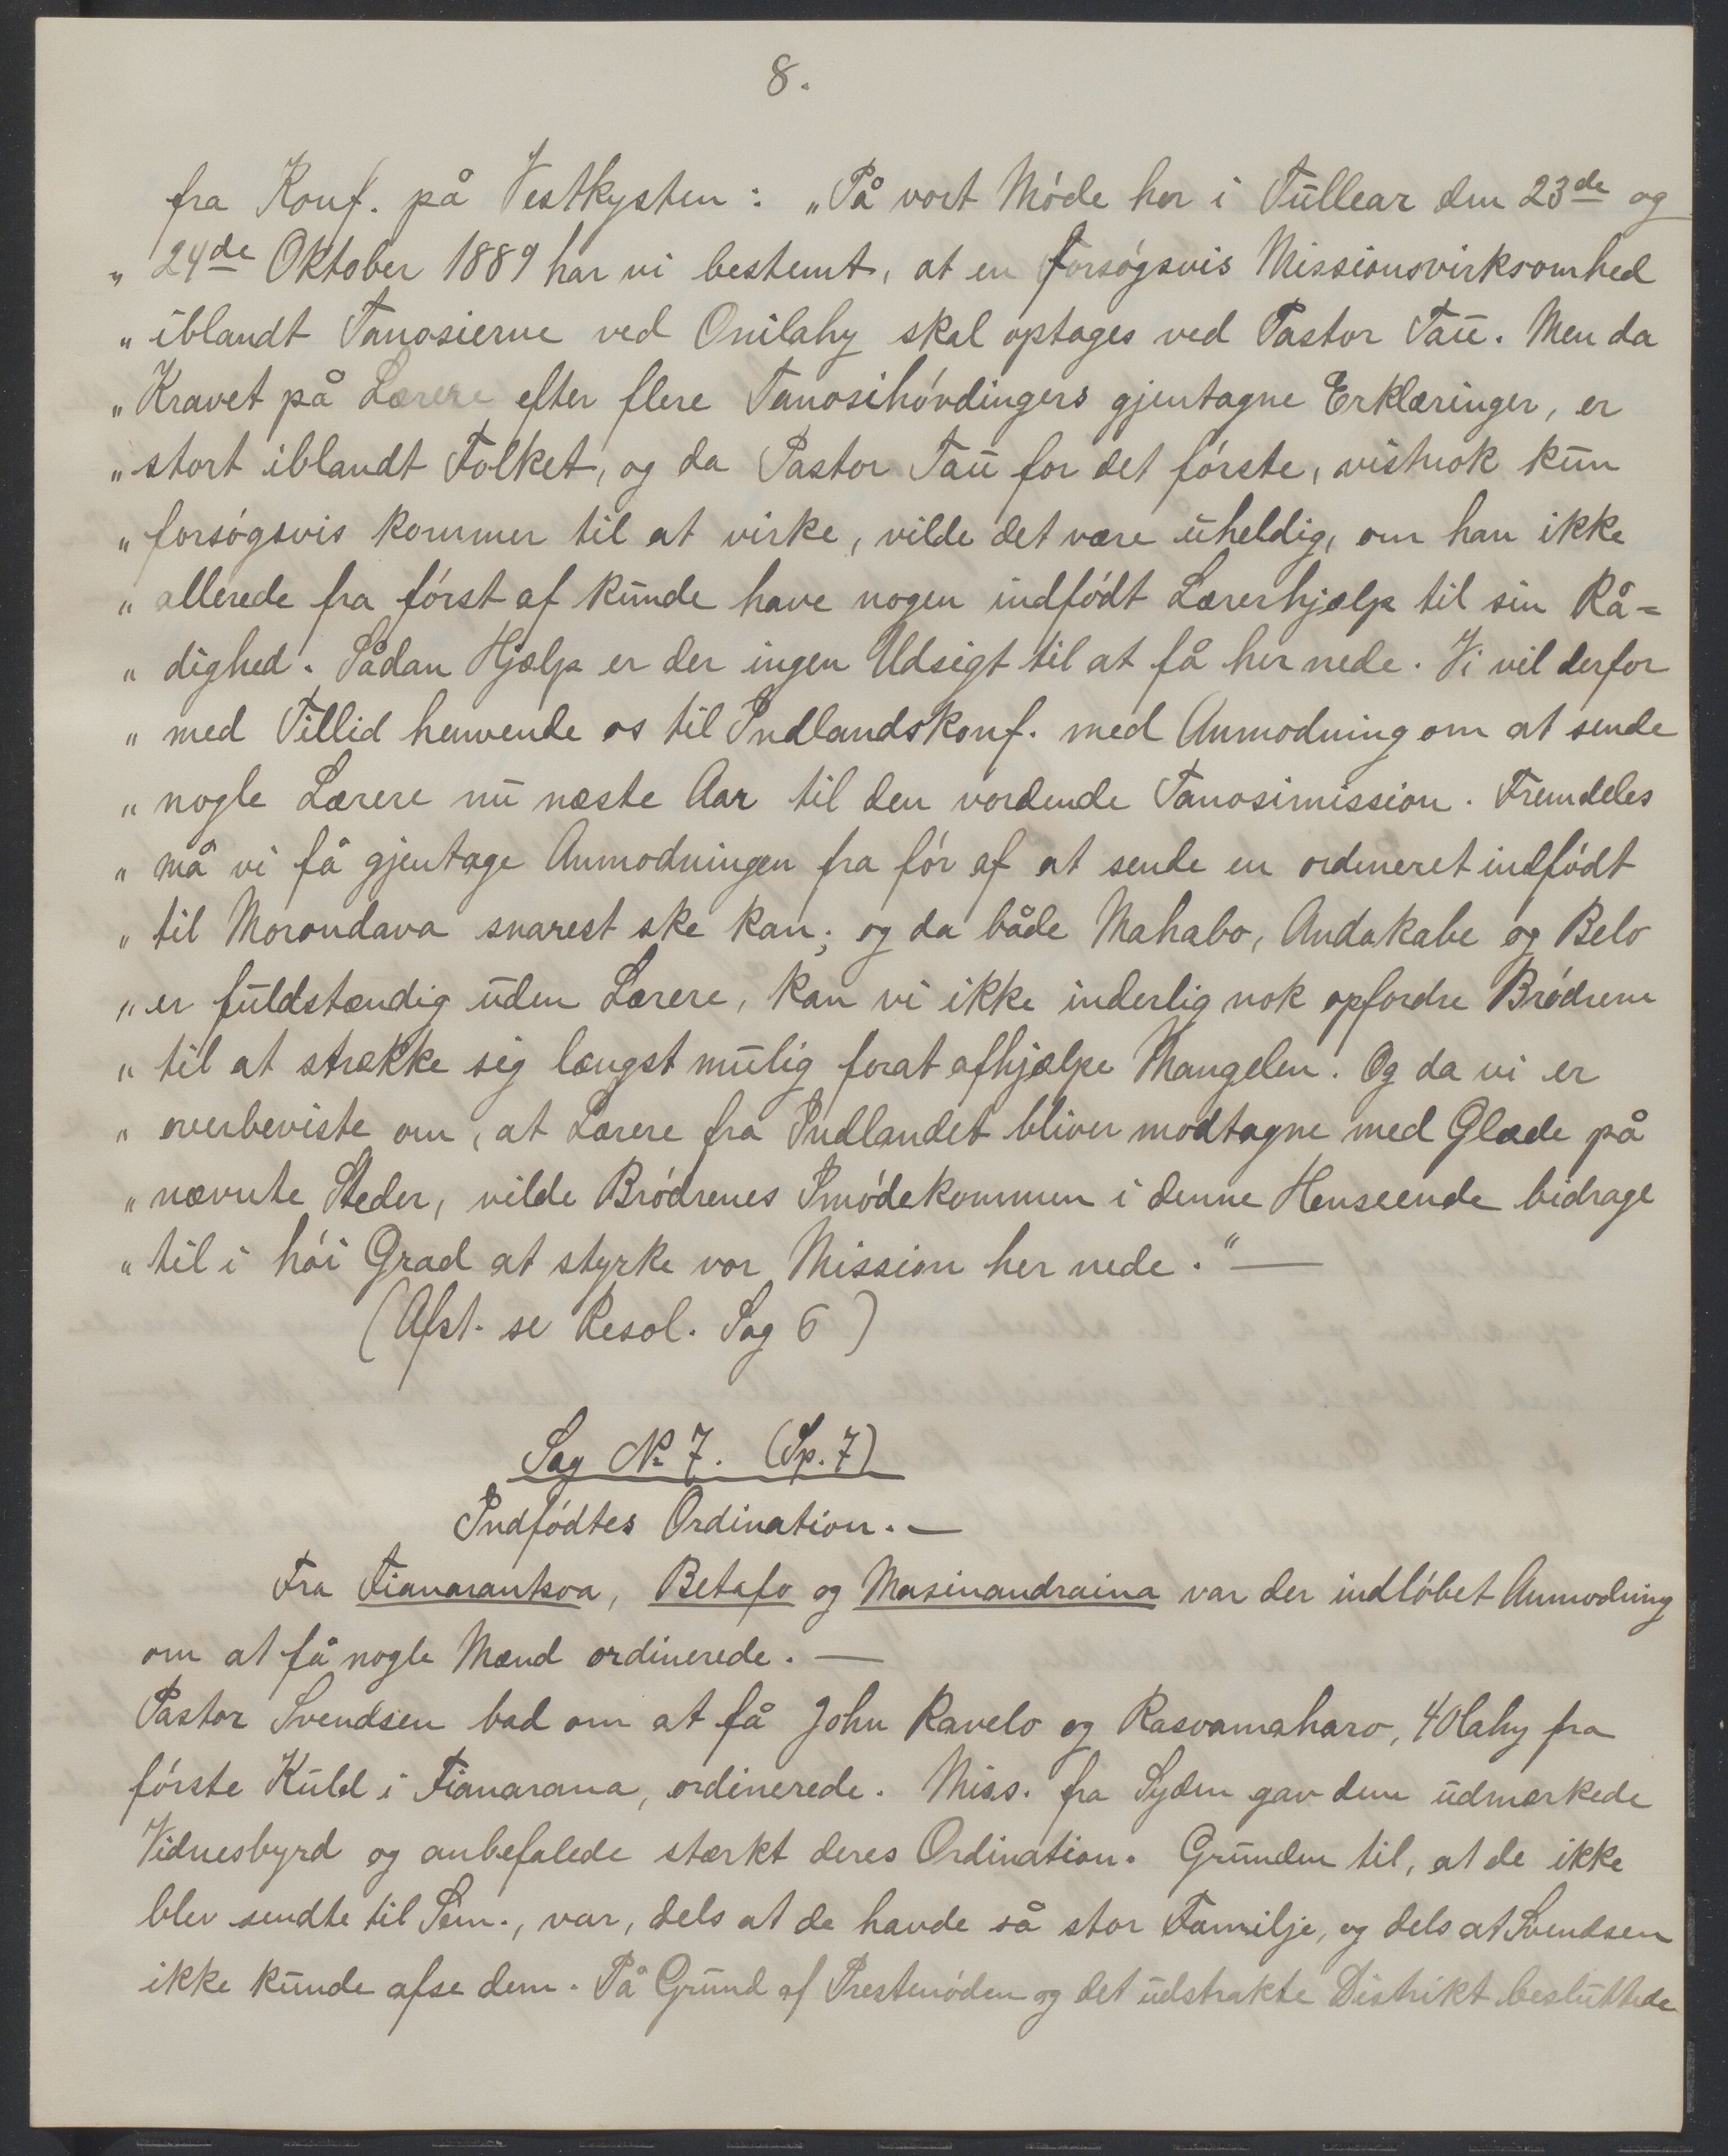 8.
fra Konf. på Vestkysten: „På vort Móde her i Tullear den 23de og
„ 24de Oktober 1889 har vi bestemt, at en forsógsvis Missionsvirksomhed
„ iblandt Tanosierne ved Onilahy skal optages ved Pastor Tau. Men da
„ Kravet på Lærere efter flere Tanosihóvdingers gjentagne Erklæringer, er
„ stort iblandt Folket, og da Pastor Tau for det fórste, vistnok kun
„ forsógsvis kommer til at virke, vilde det være uheldig, om han ikke
„ allerede fra fórst af kunde have nogen indfódt Lærerhjælp til sin Rå=
„ dighed. Sådan Hjælp er der ingen Udsigt til at få her nede. Vi vil derfor
„ med Tillid henvende os til Indlandskonf. med Anmodning om at sende
„ nogle Lærere nu næste Aar til den vordende Tanosimission. Fremdeles
„ må vi få gjentage Anmodningen fra fór af at sende en ordineret indfódt
„ til Morondava snarest ske kan; og da både Mahabo, Andakabe og Belo
„ er fuldstændig uden Lærere, kan vi ikke inderlig nok opfordre Bródrene
„ til at strække sig længst mulig forat afhjælpe Mangelen. Og da vi er
„ overbeviste om, at Lærere fra Indlandet bliver modtagne med Glæde på
„ nævnte Steder, vilde Bródrenes Imódekommen i denne Henseende bidrage
„ til i hói Grad at styrke vor Mission her nede.“ —
(Afst. se Resol. Sag 6)
Sag № 7. (Sp. 7)
Indfódtes Ordination. —
Fra Fianarantsoa, Betafo og Masinandraina var der indlóbet Anmodning
om at få nogle Mænd ordinerede. —
Pastor Svendsen bad om at få John Ravelo og Rasoamaharo, 40lahy fra
fórste Kuld i Fianarana, ordinerede. Miss. fra Syden gav dem udmærkede
Vidnesbyrd og anbefalede stærkt deres Ordination. Grunden til, at de ikke
blev sendte til Sem., var, dels at de havde så stor Familje, og dels at Svendsen
ikke kunde afse dem. På Grund af Prestenóden og det udstrakte Distrikt besluttede